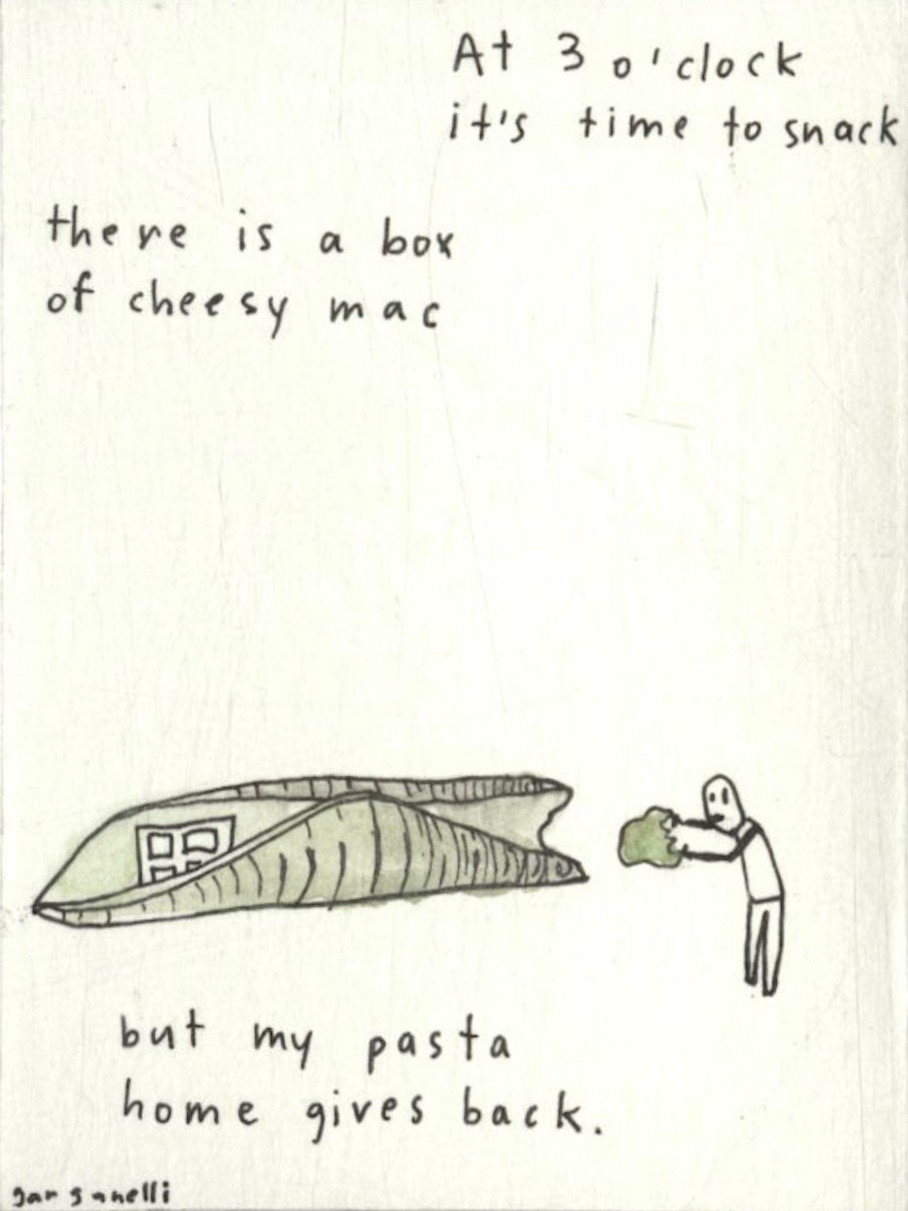 At 3 o'clock
it's time to snack
there is a box
of cheesy mac
but my pasta
home gives back.